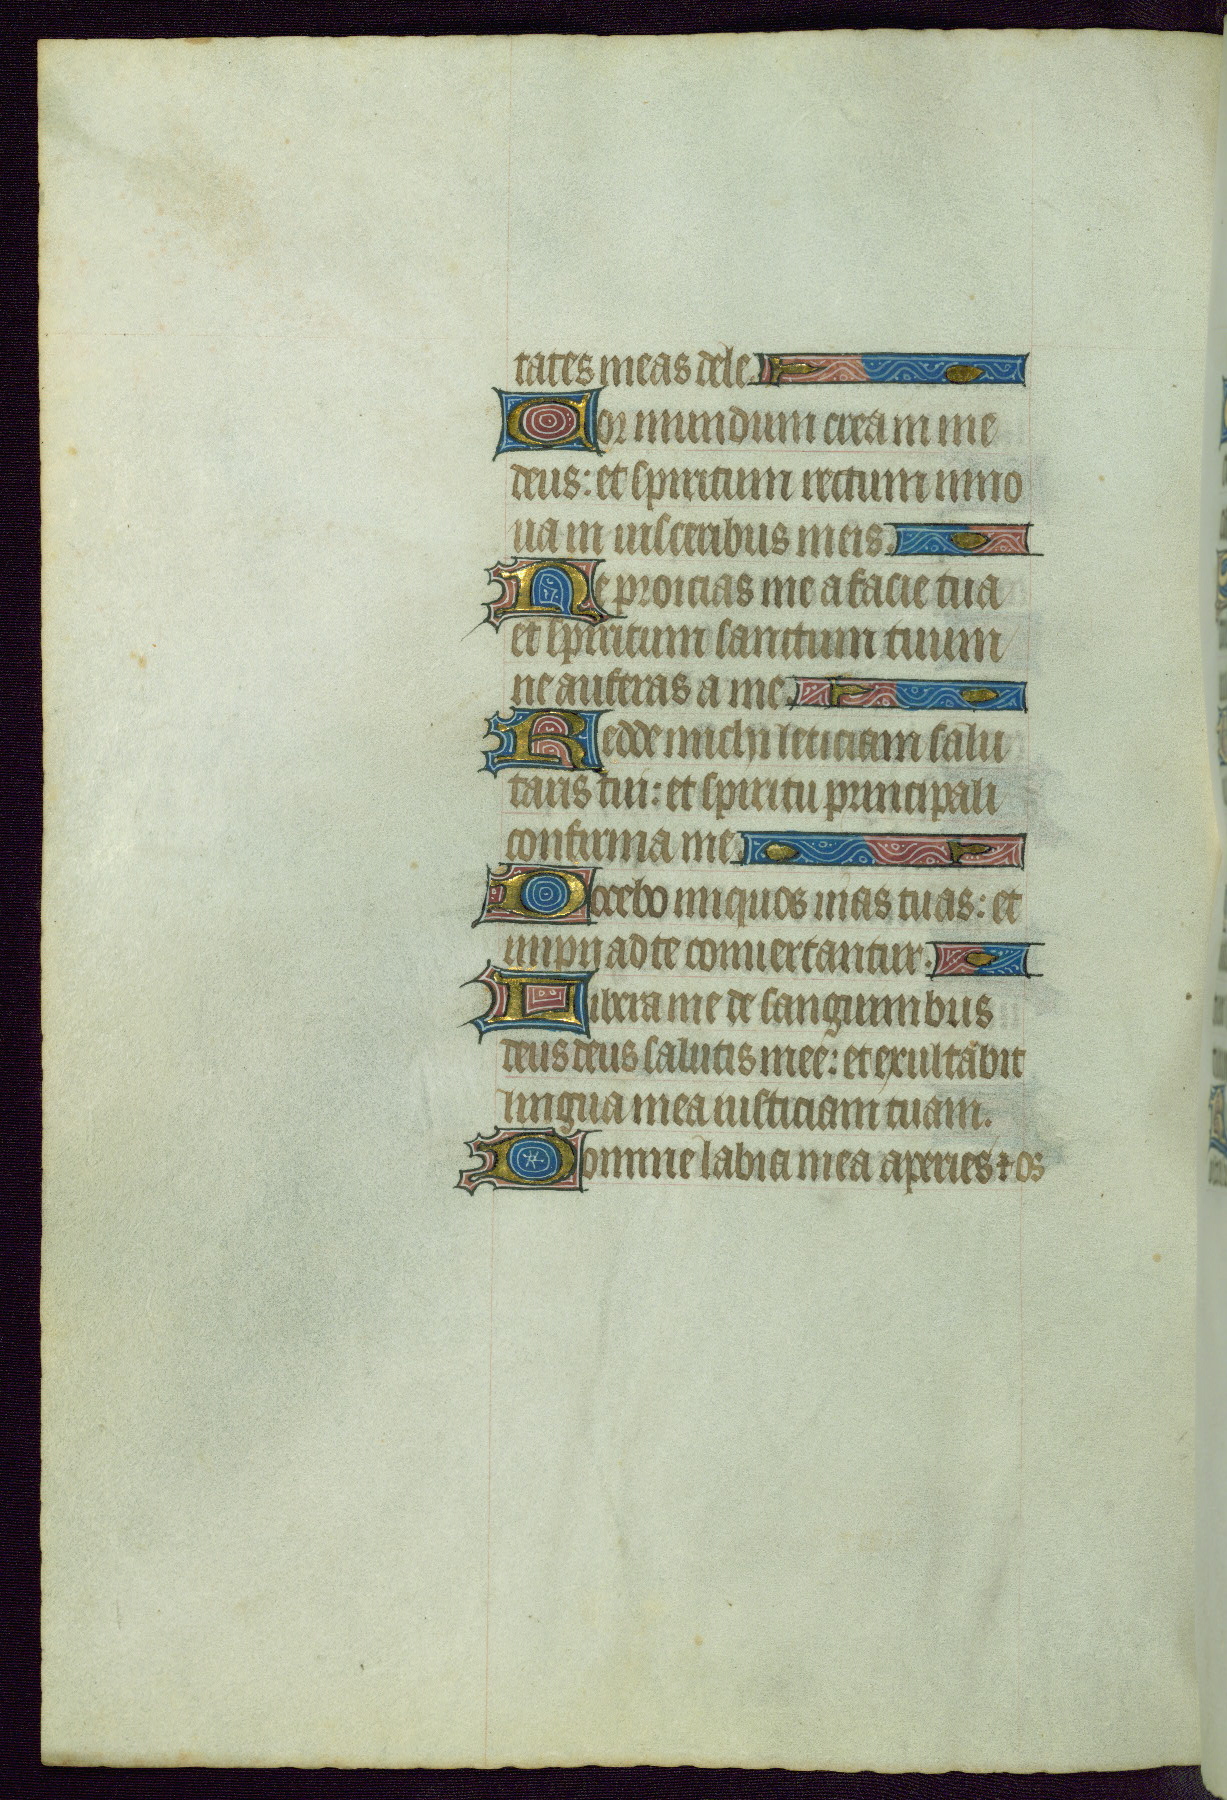 tates meas dele.
Cor mundum crea in me
deus: et spiritum rectum inno
ua in uisceribus meis.
Ne proicias me a facie tua
et spiritum sanctum tuum
ne auferas a me.
Redde michi leticiam salu
taris tui: et spiritu principali
confirma me.
Docebo iniquos uias tuas: et
impij ad te conuertantur.
Libera me de sanguinibus
deus deus salutis mee: et exultabit
lingua mea iusticiam tuam.
Domine labia mea aperies ⁊ os